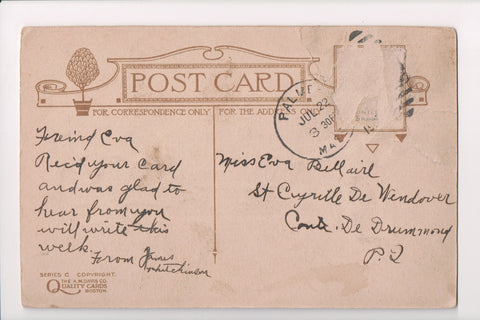 POST CARD
FOR CORRESPONDENCE ONLY
FOR THE ADDRESS
PALMER
JUL 22
3 30P
MA
Freind Eva
Rec'd your Card
and was glad to
hear from you
will write this
week.
From James
Hutchinson
Miss Eva Bellaire
St Cyrille De Wendover
Conte. De Drummond
P.Q
SERIES C COPYRIGHT.
THE A.M. DAVIS CO.
QUALITY CARDS
BOSTON.